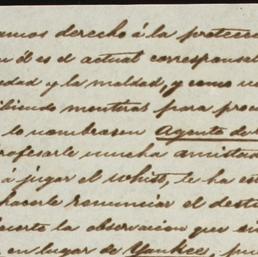 emos derecho á la protecci
n él es el actual corresponsal
edad y la maldad, y como un
ibiendo mentiras para pro
lo nombrasen Agente de
rofesarle mucha amistad
á jugar el whist, le ha
hacerle renunciar el desti
cuerto la observacion que
en lugar de Yankee, pu